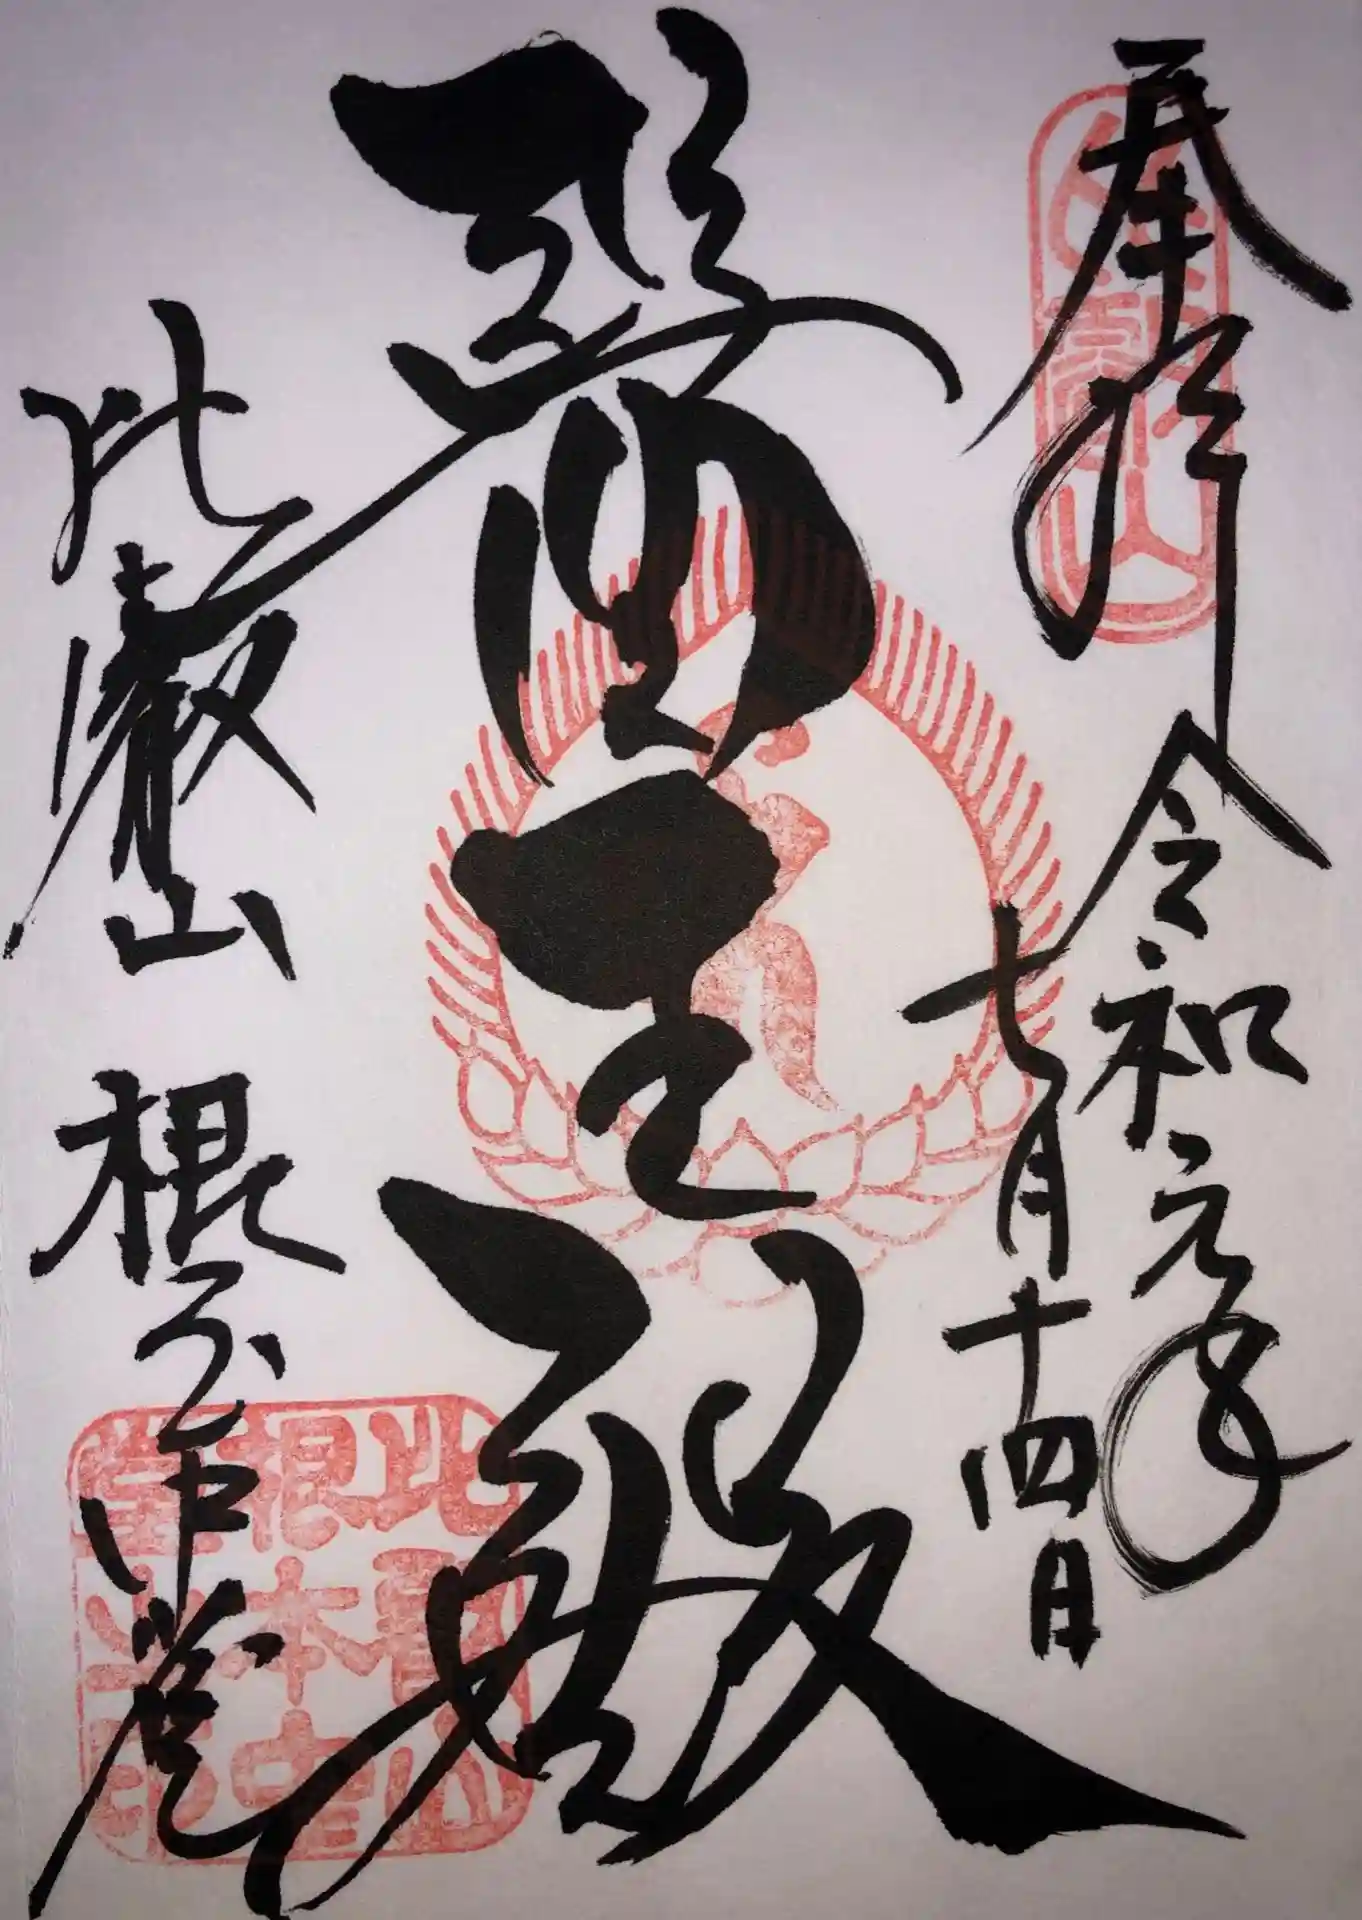 奉拝
令和元年
七月十四日
醫王殿
比叡山 根本中堂
比叡山
根本中
堂之印